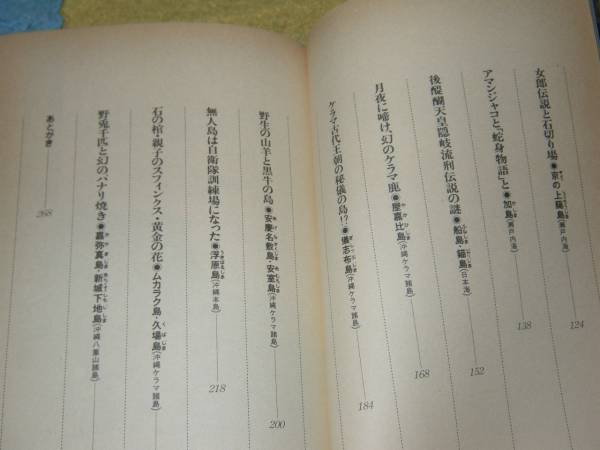 女郎伝説と石切り場◉京の上﨟島(瀬戸内海) 124
アマンジャコと「蛇身物語」と◉加島(瀬戸内海) 138
後醍醐天皇隠岐流刑伝説の謎◉船島・錨島(日本海) 152
月夜に啼け、幻のケラマ鹿◉屋嘉比島(沖縄ケラマ諸島) 168
ケラマ古代王朝の秘儀の島!?◉儀志布島(沖縄ケラマ諸島) 184
野生の山羊と黒牛の島◉安慶名敷島・安室島(沖縄ケラマ諸島) 200
無人島は自衛隊訓練場になった◉浮原島(沖縄本島) 218
石の棺・親子のスフィンクス・黄金の花◉ムカラク島・久場島(沖縄ケラマ諸島)
野兎千匹と幻のパナリ焼き◉嘉弥真島・新城下地島(沖縄八重山諸島)
あとがき 268